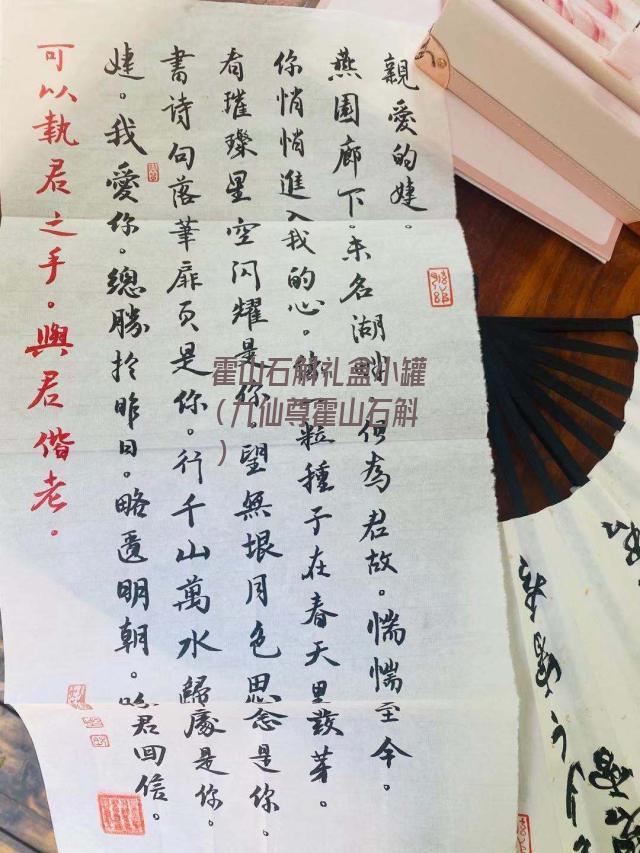 親愛的婕。
燕園廊下。未名湖畔。但為君故。惴惴至今。
你悄悄進入我的心。像一粒種子在春天里發芽。
看璀璨星空閃耀是你。望無垠月色思念是你。
書詩句落筆扉頁是你。行千山萬水歸處是你。
婕。我愛你。總勝於昨日。略遜明朝。盼君回信。
可以執君之手。與君偕老。
霍山石斛礼盒小罐
（九仙尊霍山石斛
）